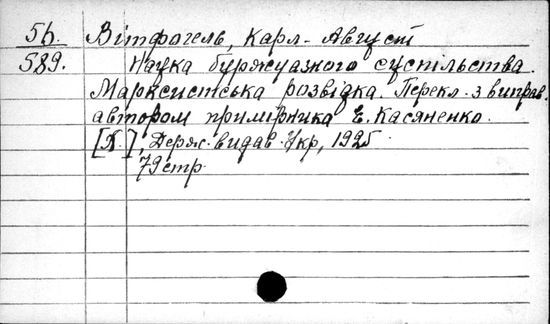 5б. Вітфогель, Карл-Август
589. Наука буржуазного сустільства.
Марксистська розвідка. Перекл. з виправ.
автором примірника Е. Касяненко.
[Х.], Держ. видав. Укр, 1925
79 стр.